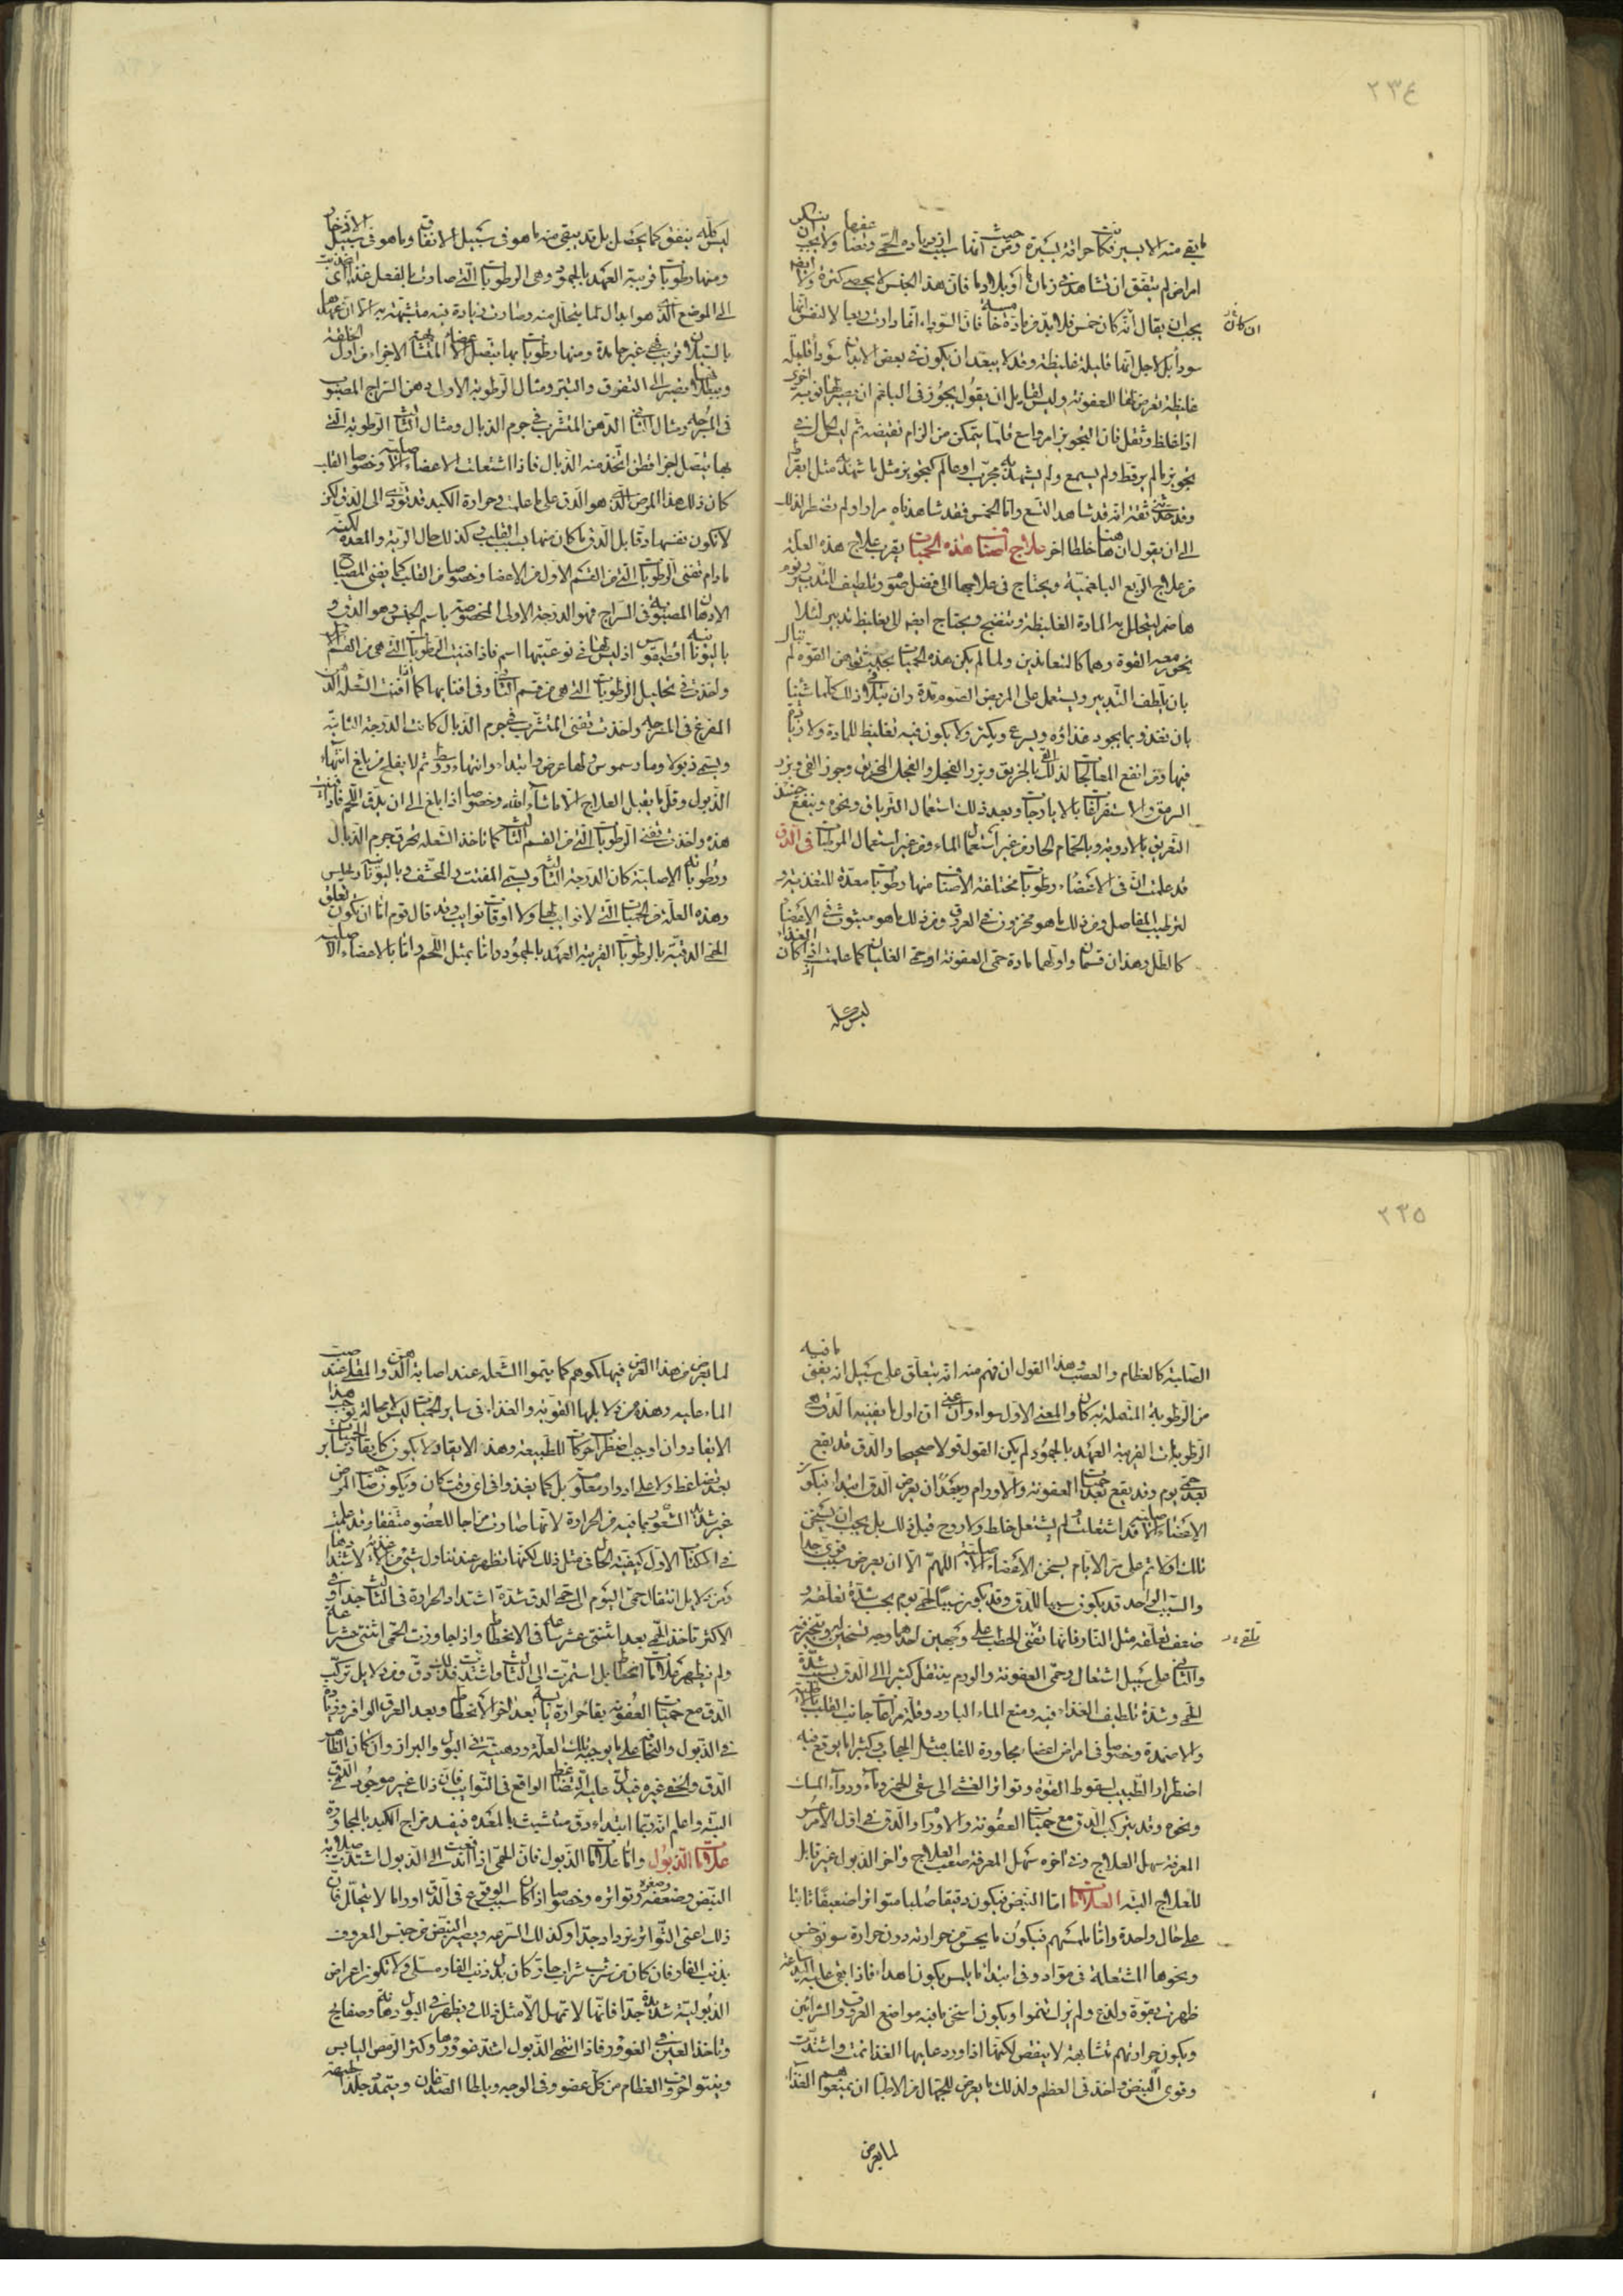 ٢٣٤
ما بقي منه الا يسير نكاب حرافته يسيرة ومن حيث انما سبب ازدياد مادة الحمى ونضا عفها ولا يجب ان ينكر
امراض لم يتفق ان تشاهد في زمان ما او بلاد ما فان هذا الجنس لا يحصى كثرة ولا ايضا
يجب ان يقال انه كان خمس فلا بد من مادة خامسة فان السوداء انما دارت ربعا لا لنفس انها
ان كانت
سوداء بل لاجل انها قليلة غليظة وقد لا يبعد ان يكون في بعض الابدان سوداء قليلة
غليظة تعرض لها العفونة وليس لقايل ان يقول يجوز في البلغم ان يصير لها نوبة اخرى
اذا غلظ وثقل فان التجويز امر واسع قلما يتمكن من الزام نقيضه ثم ليس كل شي
تجويز ما لم ير قط ولم يسمع ولم يشهد به مجرب او عالم كتجويز مثل ما شهد به مثل ابقراط
وقد حدثني ثقة انه قد شاهد التسع واما الخمس فقد شاهدناه مرارا ولم نضطر لذلك
الى ان يقول ان هنا خلطا اخر علاج اصناف هذه الحميات يقرب علاج هذه العلة
من علاج الربع البلغمية ويحتاج في علاجها الى فضل صوم وتلطيف التدبير ونوم
هاضم ليتحلل به المادة الغليظة وتنضج ويحتاج ايضا الى تغليظ تدبير لئلا
تخور معه القوة وهما كالمتعاندين ولما لم يكن هذه الحميات بحيث توهن القوة لم نبال
بان يلطف التدبير ويستعمل على المريض الصوم مدة وان نتلافى ذلك كلما شئنا
بان نغذو بما يجود غذاؤه ويسرع ويكثر ولا يكون فيه تغليظ للمادة ولا زيادة
فيها ومن انفع المعالجات لذلك القي بالخريق وبزر الفجل والفجل المخربق وجوز القي وبزر
السرمق والاستفراغات بالايارجات وبعد ذلك استعمال الترياق ونحوه وينفع حينئذ
التعريق بالادوية وبالحمام الحار من غير استعمال الماء ومن غير استعمال المرطبات في الدق
قد علمت ان في الاعضاء رطوبات مختلفة الاصناف منها رطوبات معدة للتغذية و
لترطيب المفاصل ومن ذلك ما هو مخزون في العروق ومن ذلك ما هو مبثوث في الاعضاء
كالطل وهذان قسمان واولهما مادة حمى العفونة او حمى الغليان كما علمت اذ كان الغذاء
ليس كله
ليس كله ينفق كما يحصل بل قد يبقى منه ما هو في سبيل الانفاق وما هو في سبيل الادخار
ومنها رطوبات قريبة العهد بالجمود وهي الرطوبات التي صارت بالفعل غذاء اي اجتذبت
الى الموضع الذي هو ابدال لما يتحلل منه وصارت زيادة فيه متشبهة به الا ان عهدها
بالسيلان قريب فهي غير جامدة ومنها رطوبات بها يتصل الاعضاء المتشابهة الاجزاء من اول الخلقة
وبطلانها يصير الى التفرق والتبتر ومثال الرطوبة الاولى دهن السراج المصبوب
في المسرجة ومثال الثانية الدهن المتشرب في جرم الذبال ومثال الثالثة الرطوبة التي
بها يتصل اجزا قطن اتخذ منه الذبال فاذا اشتعلت الاعضاء الاصلية وخصوصا القلب
كان ذلك هذا المرض الذي هو الدق على ما علمت وحرارة الكبد قد تؤدي الى الدق لكن
لا تكون نفسها دقا بل الدق ما كان منها بسبب القلب وكذلك حال الرية والمعدة لكنه
ما دام تفنى الرطوبات التي من القسم الاول من الاعضا وخصوصا من القلب كما يفنى المصباح
الادهان المصبوبة في السراج فهو الدرجة الاولى المخصوصة باسم الجنس وهو الدق و
باليونانية اقطيقوس اذ ليس لها في نوعيتها اسم فاذا فنيت الرطوبات التي هي من القسم الاول
واخذت في تحليل الرطوبات التي هي من قسم الثاني وفي افنائها كما افنت الشعلة الدهن
المفرغ في المسرجة واخذت تفنى المتشرب في جرم الذبال كانت الدرجة الثانية
ويسمى ذبولا ومارسموس ولها عرض وابتداء وانتهاء ووسط ثم لا يفلح من بلغ انتهاء
الذبول وقل ما يقبل العلاج الا ما شاء الله وخصوصا اذا بلغ الى ان يدق اللحم فاذا فنيت
هذه واخذت تفنى الرطوبات التي من القسم الثالث كما تاخذ الشعلة تحرق جرم الذبال
ورطوباته الاصلية كان الدرجة الثالثة ويسمى المفتت والمحشف وباليونانية
وهذه العلة من الحميات التي لا نوايب لها ولا اوقات نوايب وقد قال قوم اما ان يكون تعلق
الحمى الدقية بالرطوبات القريبة العهد بالجمود واما بمثل اللحم واما بالاعضاء الاصلية
٢٣٥
الصلبة كالعظام والعصب وهذا القول ان فهم منه انه يتعلق على سبيل انه يفنى ما فيه
من الرطوبة المتصلة به كان والمعنى الاول سواء وان عنى ان اول ما يفنيه الدق هي
الرطوبات القريبة العهد بالجمود لم يكن القول قولا صحيحا والدق قد يقع
بعد حمى يوم وقد يقع بعد حميات العفونة والاورام وببعد ان يعرض الدق ابتداء فيكون
الاعضاء الاصلية قد اشتعلت ولم يشتعل خلط ولا روح قبل ذلك بل يجب ان يسخن
تلك اولا ثم على مر الايام يسخن الاعضاء الاصلية اللهم الا ان يعرض سبب قوي جدا
والسبب الواحد قد يكون سببا للدق وقد يكون سببا لحمى يوم بحسب شدة تعلقه و
ضعف تعلقه مثل النار فانها تفنى الحطب على وجهين احدهما وجه تسخين له وتبخير منه
والثاني على سبيل اشتعال وحمى العفونة والورم ينتقل كثيرا الى الدق بسبب شدة
الحمى وشدة تلطيف الغذاء فيه ومنع الماء البارد وقلة مراعاة جانب القلب بالاطلية
والاضمدة وخصوصا في امراض اعضاء مجاورة للقلب مثل الحجاب وكثيرا ما يوقع فيه
اضطرار الطبيب لسقوط القوة وتواتر الغشي الى سقي الخمر وماء ودواء المسك
ونحوه وقد يتركب الدق مع حميات العفونة والاورام والدق في اول الامر عسر
المعرفة سهل العلاج وفي آخره سهل المعرفة صعب العلاج وآخر الذبول غير قابل
للعلاج البتة العلامات اما النبض فيكون دقيقا صلبا متواترا ضعيفا ثابتا
على حال واحدة واما ملمسهم فيكون ما يحس من حرارته دون حرارة سونوخس
ونحوها المشتعلة في مواد وفي ابتداء ما يلمس يكون اهدا فاذا بقي عليه اليد ساعة
ظهرت بقوة ولذع ولم يزل ينموا ويكون اسخن ما فيه مواضع العروق والشرائين
ويكون حرارتهم متشابهة لا ينقص لكنها اذا ورد عليها الغذا نمت واشتدت
وقوي النبض واخذ في العظم ولذلك ما يعرض للجهال من الاطباء ان يمنعوهم الغذاء
لما يعرض
لما يعرض من هذا العرض فيهلكوهم كما ينموا الشعلة عند اصابة الدهن والمقلى عند صبت
الماء عليه وهذه من دلايلها القوية والغذاء في ساير الحميات ليس لا محالة يوجب هذا
الاتقاد وان اوجب اضطراب حركات الطبيعة وهذا الاتقاد لا يكون كاتقاد ساير الحميات
بعد تضاغط ولا على ادوار معلومة بل كما يغذوا في اي وقت كان ويكون صاحب المرض
غير شديد الشعور بما فيه من الحرارة لانها صارت مزاجا للعضو متفقا وقد علمت
في الكتاب الاول كيفية الحال في مثل ذلك لكنها تظهر عند تناول شي من الاغذية لاشتدادها
ومن دلايل انتقال حمى اليوم الى حمى الدق شدة اشتداد الحرارة في الثالث جدا وفي
الاكثر تاخذ الحمى بعد اثنتي عشرة ساعة في الانحطاط واذا جاوزت الحمى اثنتي عشرة ساعة
ولم يظهر علامات انحطاط بل استمرت الى الثالث واشتدت فذلك دق ومن دلايل تركب
الدق مع حميات العفونة بقاء حرارة يابسة بعد آخر الانحطاط وبعد العرق الوافر وزيادة
في الذبول والنحافة على ما يوجبه تلك العلة ودهنية في البول والبراز وان كان الظاهر
الدق والخفي غيره فيدل عليه التضاغط الواقع في النوايب فان ذلك غير موجود في الدق
البتة واعلم انه ربما ابتداء دق متشبث بالمعدة فيفسد مزاج الكبد بالمجاورة
علامات الذبول واما علامات الذبول فان الحمى اذا اندفعت الى الذبول اشتدت صلابة
النبض وضعفه وصغره وتواتره وخصوصا اذا كان سبب الوقوع في الدق اوراما لا يتحلل فان
ذلك اعني التواتر يزداد جدا وكذلك السرعة ويصير النبض من جنس المعروف
بذنب الفار فان كان من شرب شراب حار كان بدل ذنب الفار مسلى ولا تكون اعراض
الذبولية شديدة جدا فانها لا تمهل الا مثل ذلك ويظهر في البول دهانة وصفايح
وتاخذ العين في الغوور فاذا انتهى الذبول اشتد غوورها وكثر الرمص اليابس
وينتوا حروف العظام من كل عضو وفي الوجه وباطن الصدغان ويتمدد جلد الجبهة